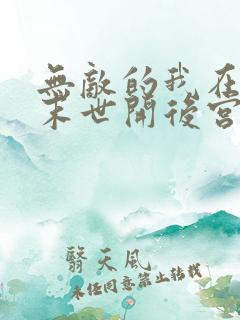 無敵的我在
末世開後宮
翳天風
未經同意禁止轉載